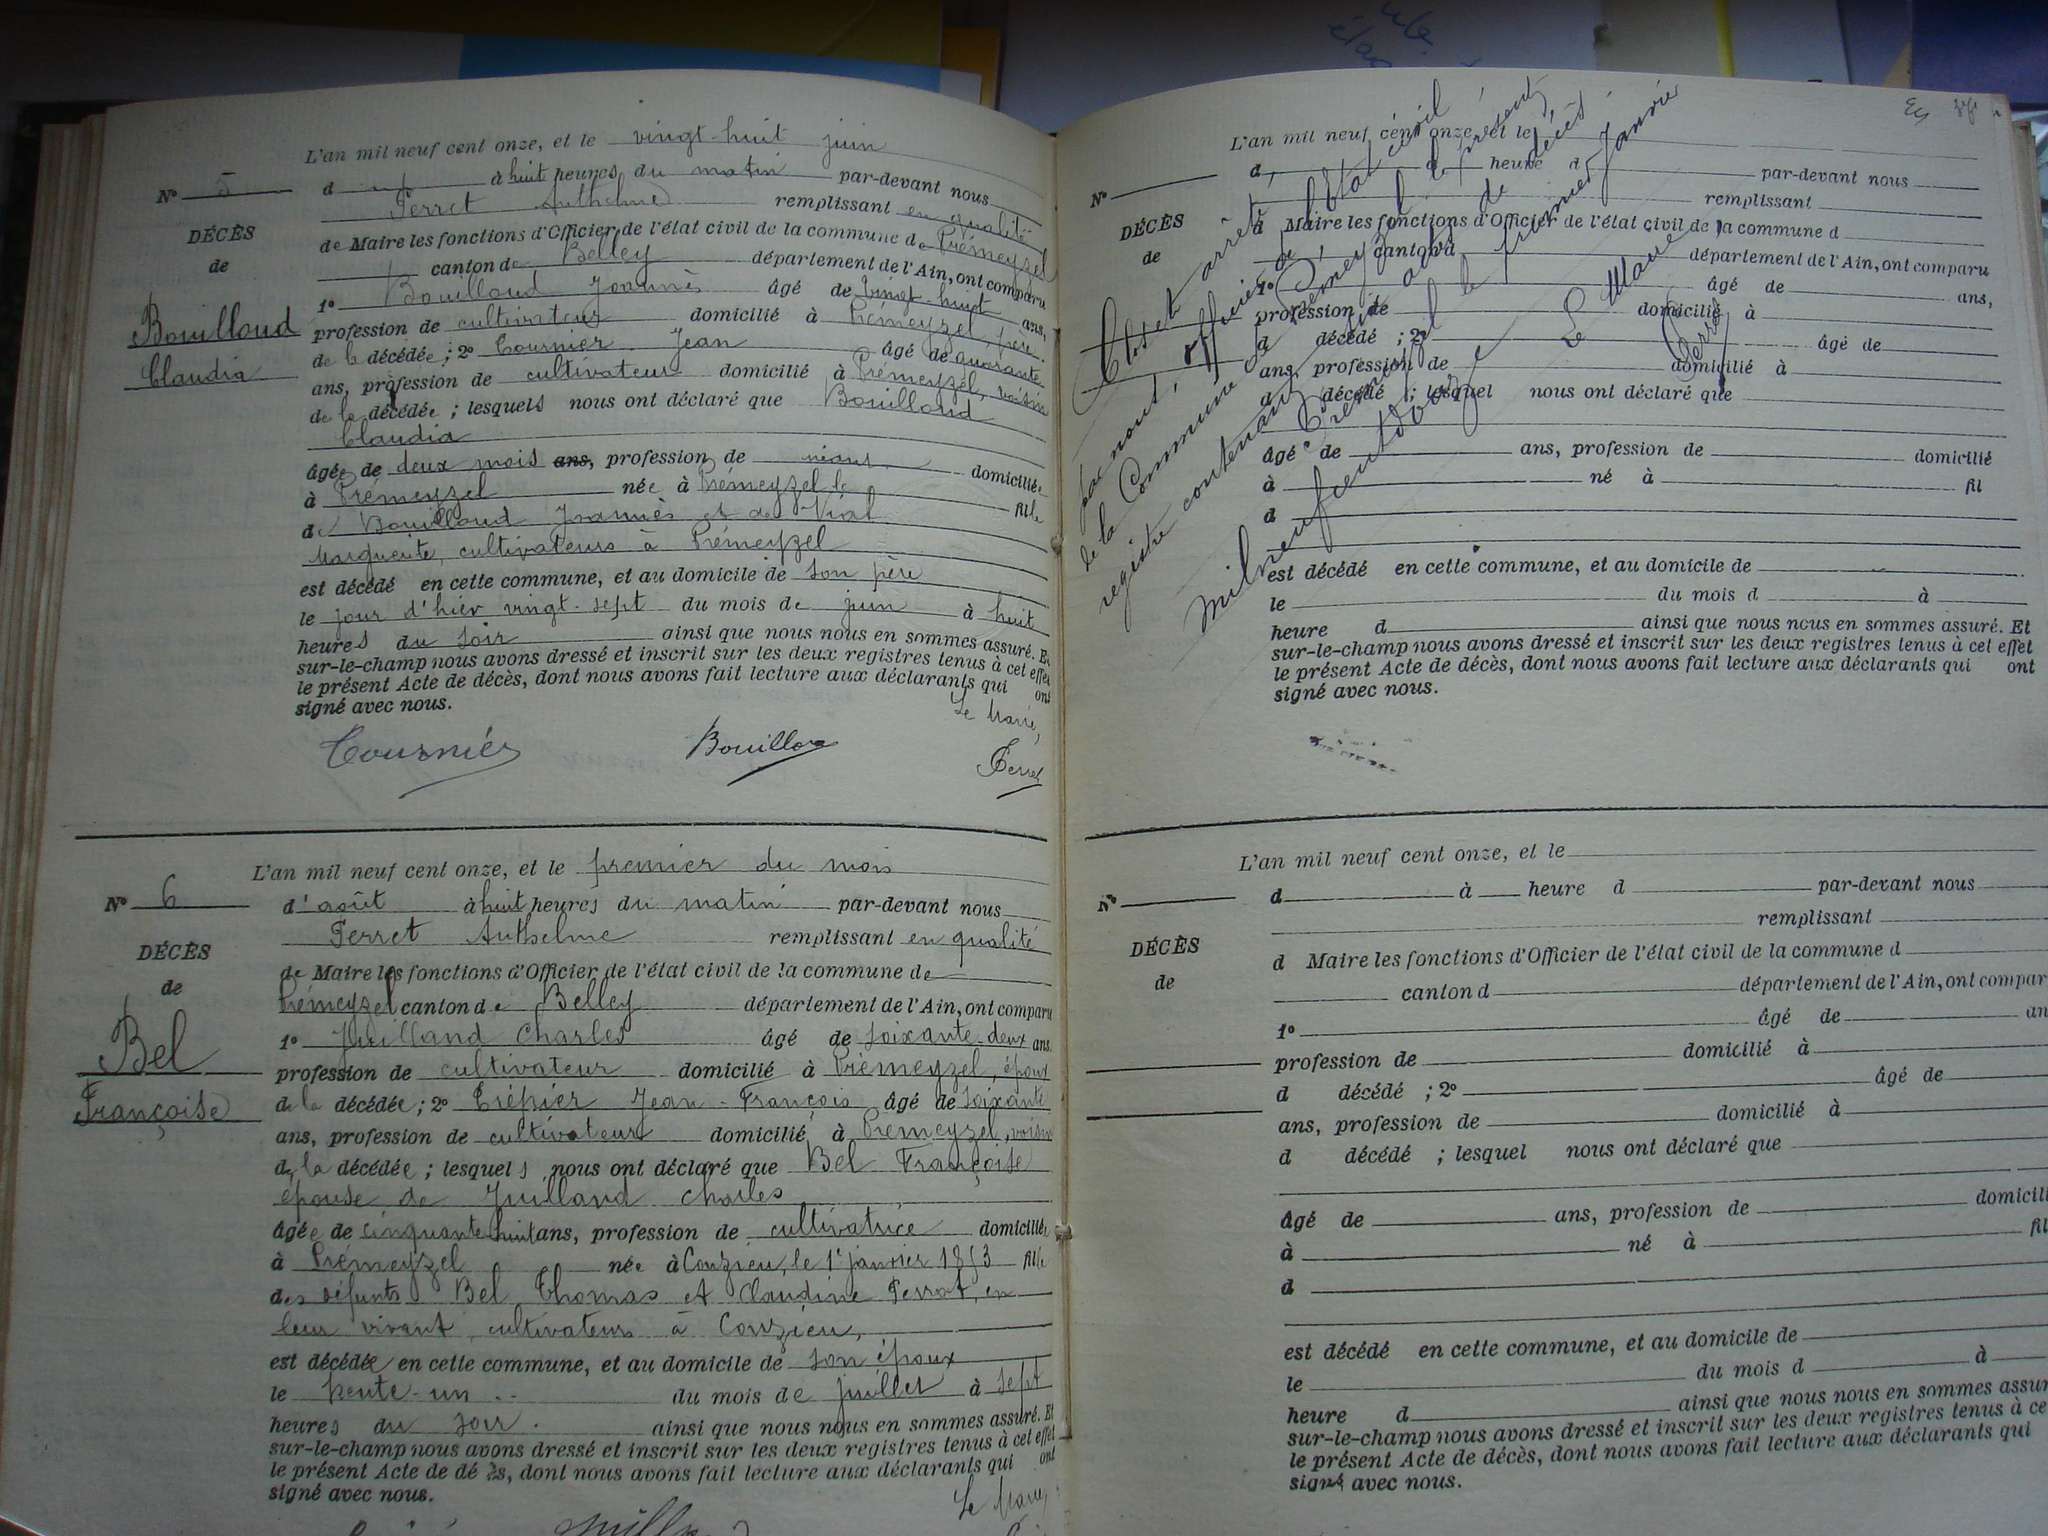 L'an mil neuf cent onze, et le vingt-huit juin
N° 5
d à huit heures du matin par-devant nous
Ferret Anthelme remplissant en qualité
DÉCÈS
de Maire les fonctions d'Officier de l'état civil de la commune de Prémeyzel
de
canton de Belley département de l'Ain, ont comparu
1° Bouilloud Joannès âgé de vingt-huit ans,
Bouilloud
profession de cultivateur domicilié à Prémeyzel, père
Claudia
de la décédée ; 2° Tournier Jean âgé de quarante
ans, profession de cultivateur domicilié à Prémeyzel, voisin
de la décédée ; lesquels nous ont déclaré que Bouilloud
Claudia
âgée de deux mois ans, profession de néant domiciliée
à Prémeyzel née à Prémeyzel le fille
de Bouilloud Joannès et de Vial
Marguerite, cultivateurs à Prémeyzel
est décédé en cette commune, et au domicile de son père
le jour d'hier vingt-sept du mois de juin à huit
heures du soir ainsi que nous nous en sommes assuré. Et
sur-le-champ nous avons dressé et inscrit sur les deux registres tenus à cet effet
le présent Acte de décès, dont nous avons fait lecture aux déclarants qui ont
signé avec nous.
Le Maire,
Tournier Bouilloud Ferret
L'an mil neuf cent onze, et le premier du mois
N° 6
d'août à huit heures du matin par-devant nous
Ferret Anthelme remplissant en qualité
DÉCÈS
de Maire les fonctions d'Officier de l'état civil de la commune de
de
Prémeyzel canton de Belley département de l'Ain, ont comparu
1° Juilland Charles âgé de soixante-deux ans
Bel
profession de cultivateur domicilié à Prémeyzel, époux
Françoise
de la décédée ; 2° Trépier Jean-François âgé de soixante
ans, profession de cultivateur domicilié à Prémeyzel, voisin
de la décédée ; lesquels nous ont déclaré que Bel Françoise
épouse de Juilland Charles
âgée de cinquante huit ans, profession de cultivatrice domiciliée
à Prémeyzel née à Conzieu, le 1er janvier 1853 fille
des défunts Bel Thomas et Claudine Perrot, en
leur vivant cultivateurs à Conzieu,
est décédée en cette commune, et au domicile de son époux
le trente-un du mois de juillet à sept
heures du soir. ainsi que nous nous en sommes assuré. Et
sur-le-champ nous avons dressé et inscrit sur les deux registres tenus à cet effet
le présent Acte de décès, dont nous avons fait lecture aux déclarants qui ont
signé avec nous.
Le Maire,
L'an mil neuf cent onze, et le
N°
d à heure d par-devant nous
remplissant
DÉCÈS
d Maire les fonctions d'Officier de l'état civil de la commune d
de
canton d département de l'Ain, ont comparu
1° âgé de ans,
profession de domicilié à
d décédé ; 2° âgé de
ans, profession de domicilié à
d décédé ; lesquel nous ont déclaré que
âgé de ans, profession de domicilié
à né à fil
d
est décédé en cette commune, et au domicile de
le du mois d à
heure d ainsi que nous nous en sommes assuré. Et
sur-le-champ nous avons dressé et inscrit sur les deux registres tenus à cet effet
le présent Acte de décès, dont nous avons fait lecture aux déclarants qui ont
signé avec nous.
Clos et arrêté
par nous, officier de l'état civil
de la Commune de Prémeyzel le présent
registre contenant six actes de décès
Prémeyzel le premier Janvier
mil neuf cent douze
Le Maire
Ferret
L'an mil neuf cent onze, et le
N°
d à heure d par-devant nous
remplissant
DÉCÈS
d Maire les fonctions d'Officier de l'état civil de la commune d
de
canton d département de l'Ain, ont compar
1° âgé de an
profession de domicilié à
d décédé ; 2° âgé de
ans, profession de domicilié à
d décédé ; lesquel nous ont déclaré que
âgé de ans, profession de domicili
à né à fil
d
est décédé en cette commune, et au domicile de
le du mois d à
heure d ainsi que nous nous en sommes assur
sur-le-champ nous avons dressé et inscrit sur les deux registres tenus à ce
le présent Acte de décès, dont nous avons fait lecture aux déclarants qui
signé avec nous.